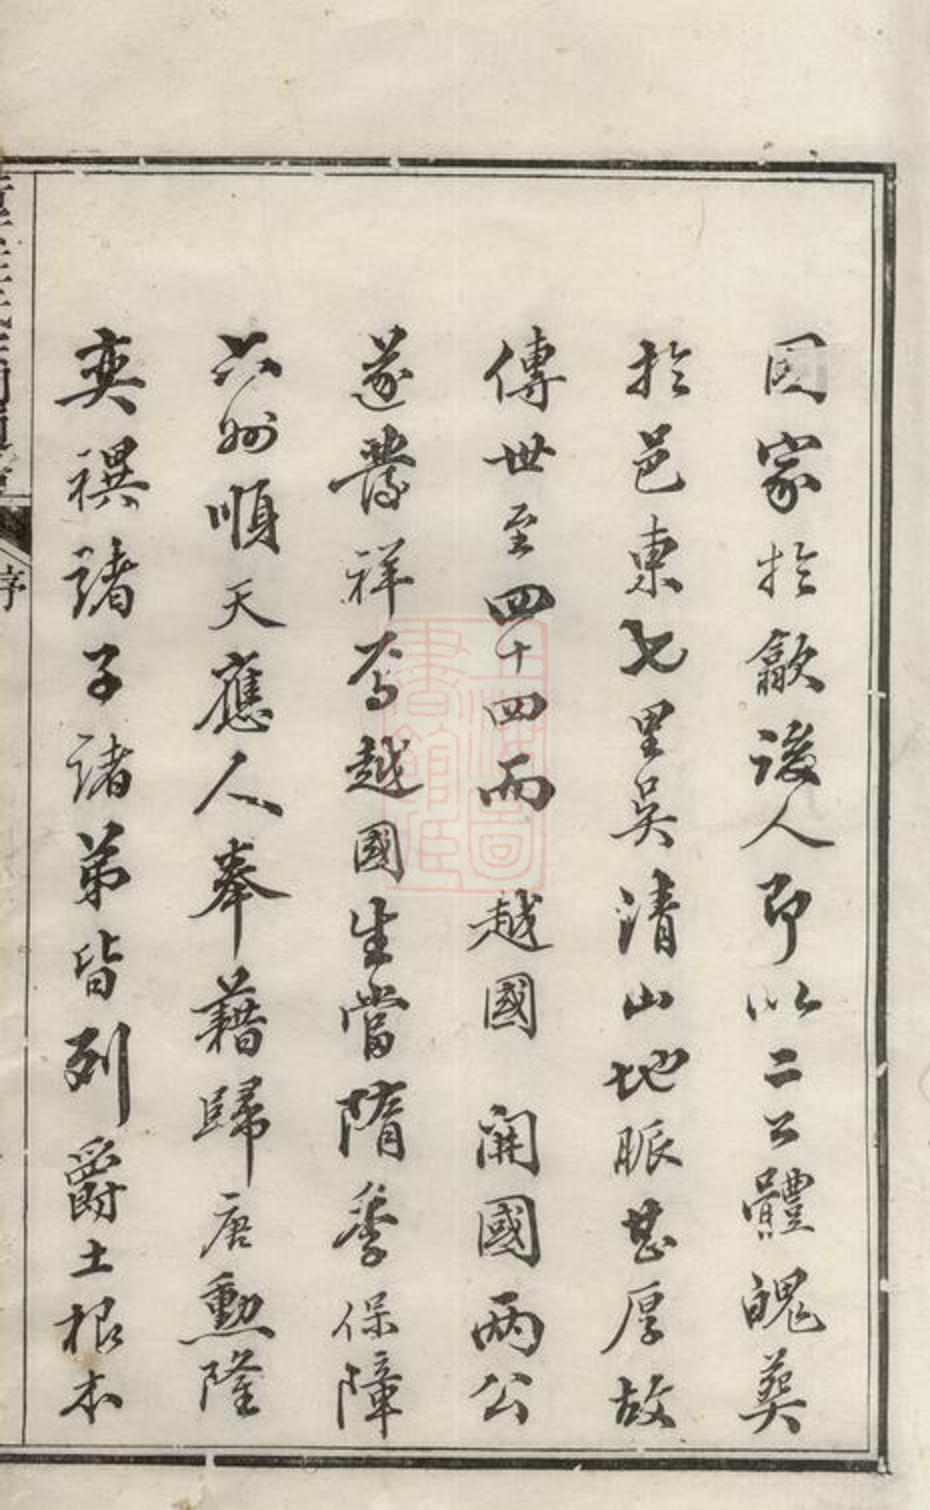 因家於歙後人即以二公體魄葬
於邑東七里吳清山地脈甚厚故
傳世至四十四而 越國 開國兩公
遂發祥焉越國生當隋季保障
六州順天應人奉藉歸唐勳隆
奕禩諸子諸弟皆列爵土根本
序
上海圖書館藏